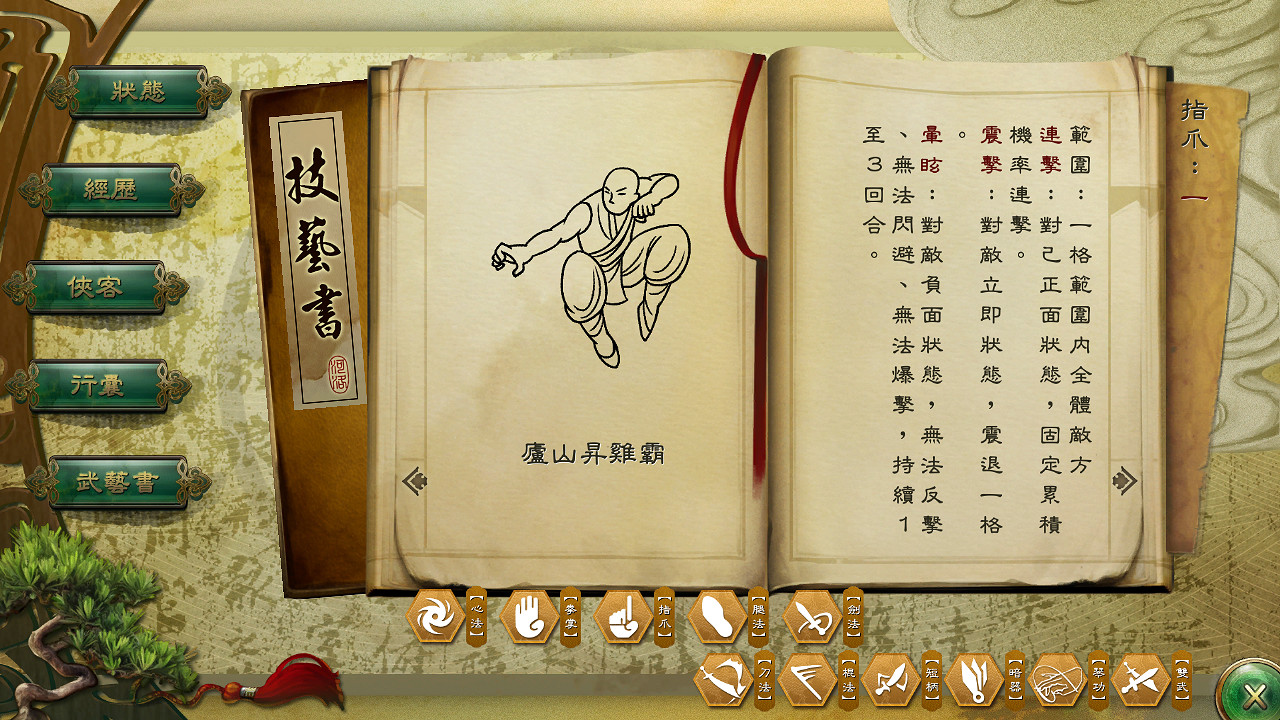 狀態
經歷
俠客
行囊
武藝書
技藝書
河洛
廬山昇雞霸
範圍：一格範圍內全體敵方
連擊：對己正面狀態，固定累積
機率連擊。
震擊：對敵立即狀態，震退一格
。
暈眩：對敵負面狀態，無法反擊
、無法閃避、無法爆擊，持續1
至3回合。
指爪：一
【心法】
【拳掌】
【指爪】
【腿法】
【劍法】
【刀法】
【棍法】
【短柄】
【暗器】
【琴功】
【雙武】